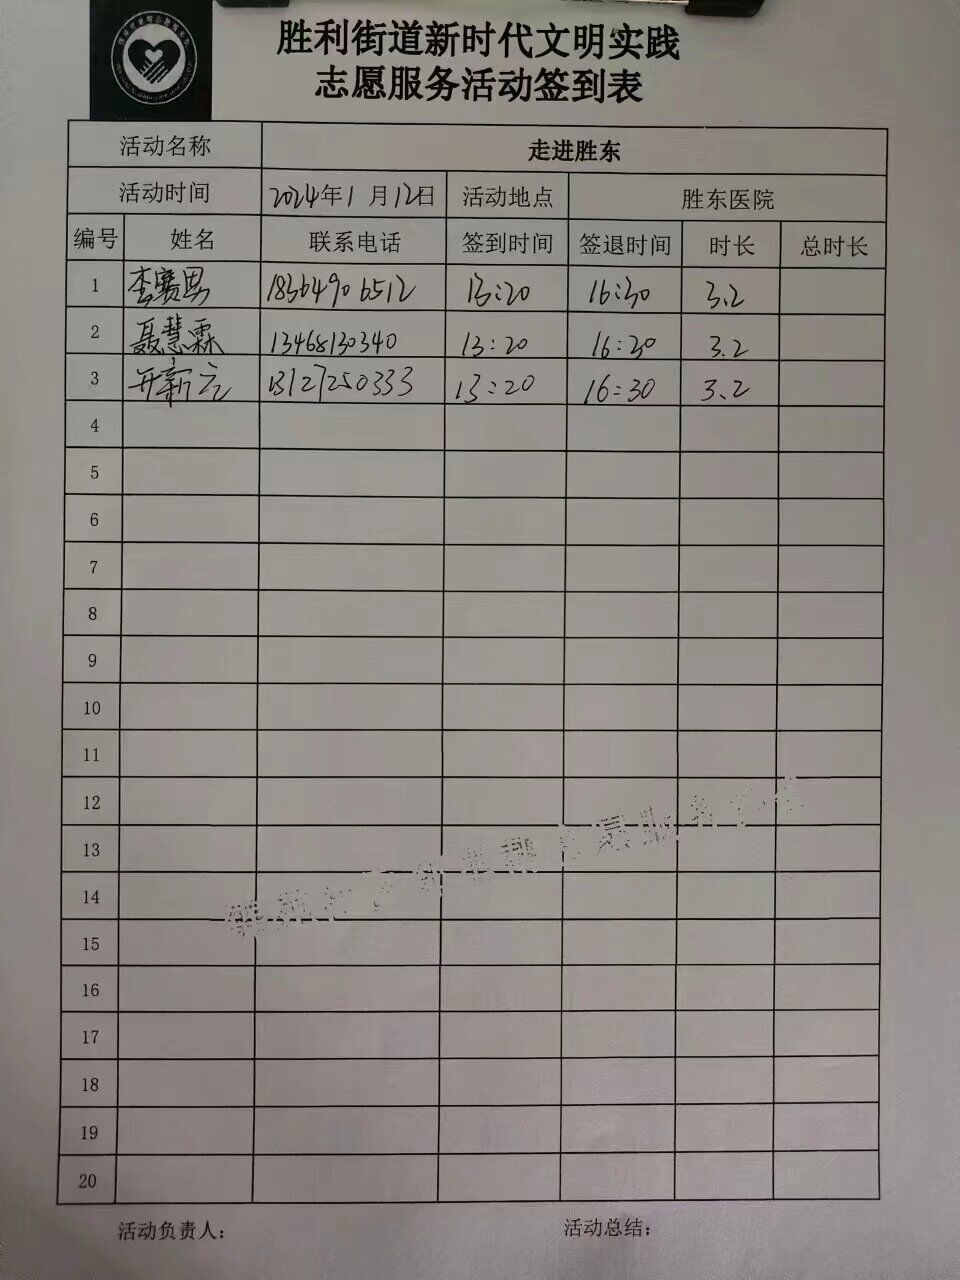 胜利街道新时代文明实践
志愿服务活动签到表
活动名称 走进胜东
活动时间 2024年1月12日 活动地点 胜东医院
编号 姓名 联系电话 签到时间 签退时间 时长 总时长
1 李赛男 18364906512 13:20 16:30 3.2
2 聂慧霖 13468130340 13:20 16:30 3.2
3 13127250333 13:20 16:30 3.2
4
5
6
7
8
9
10
11
12
13
14
15
16
17
18
19
20
活动负责人: 活动总结: